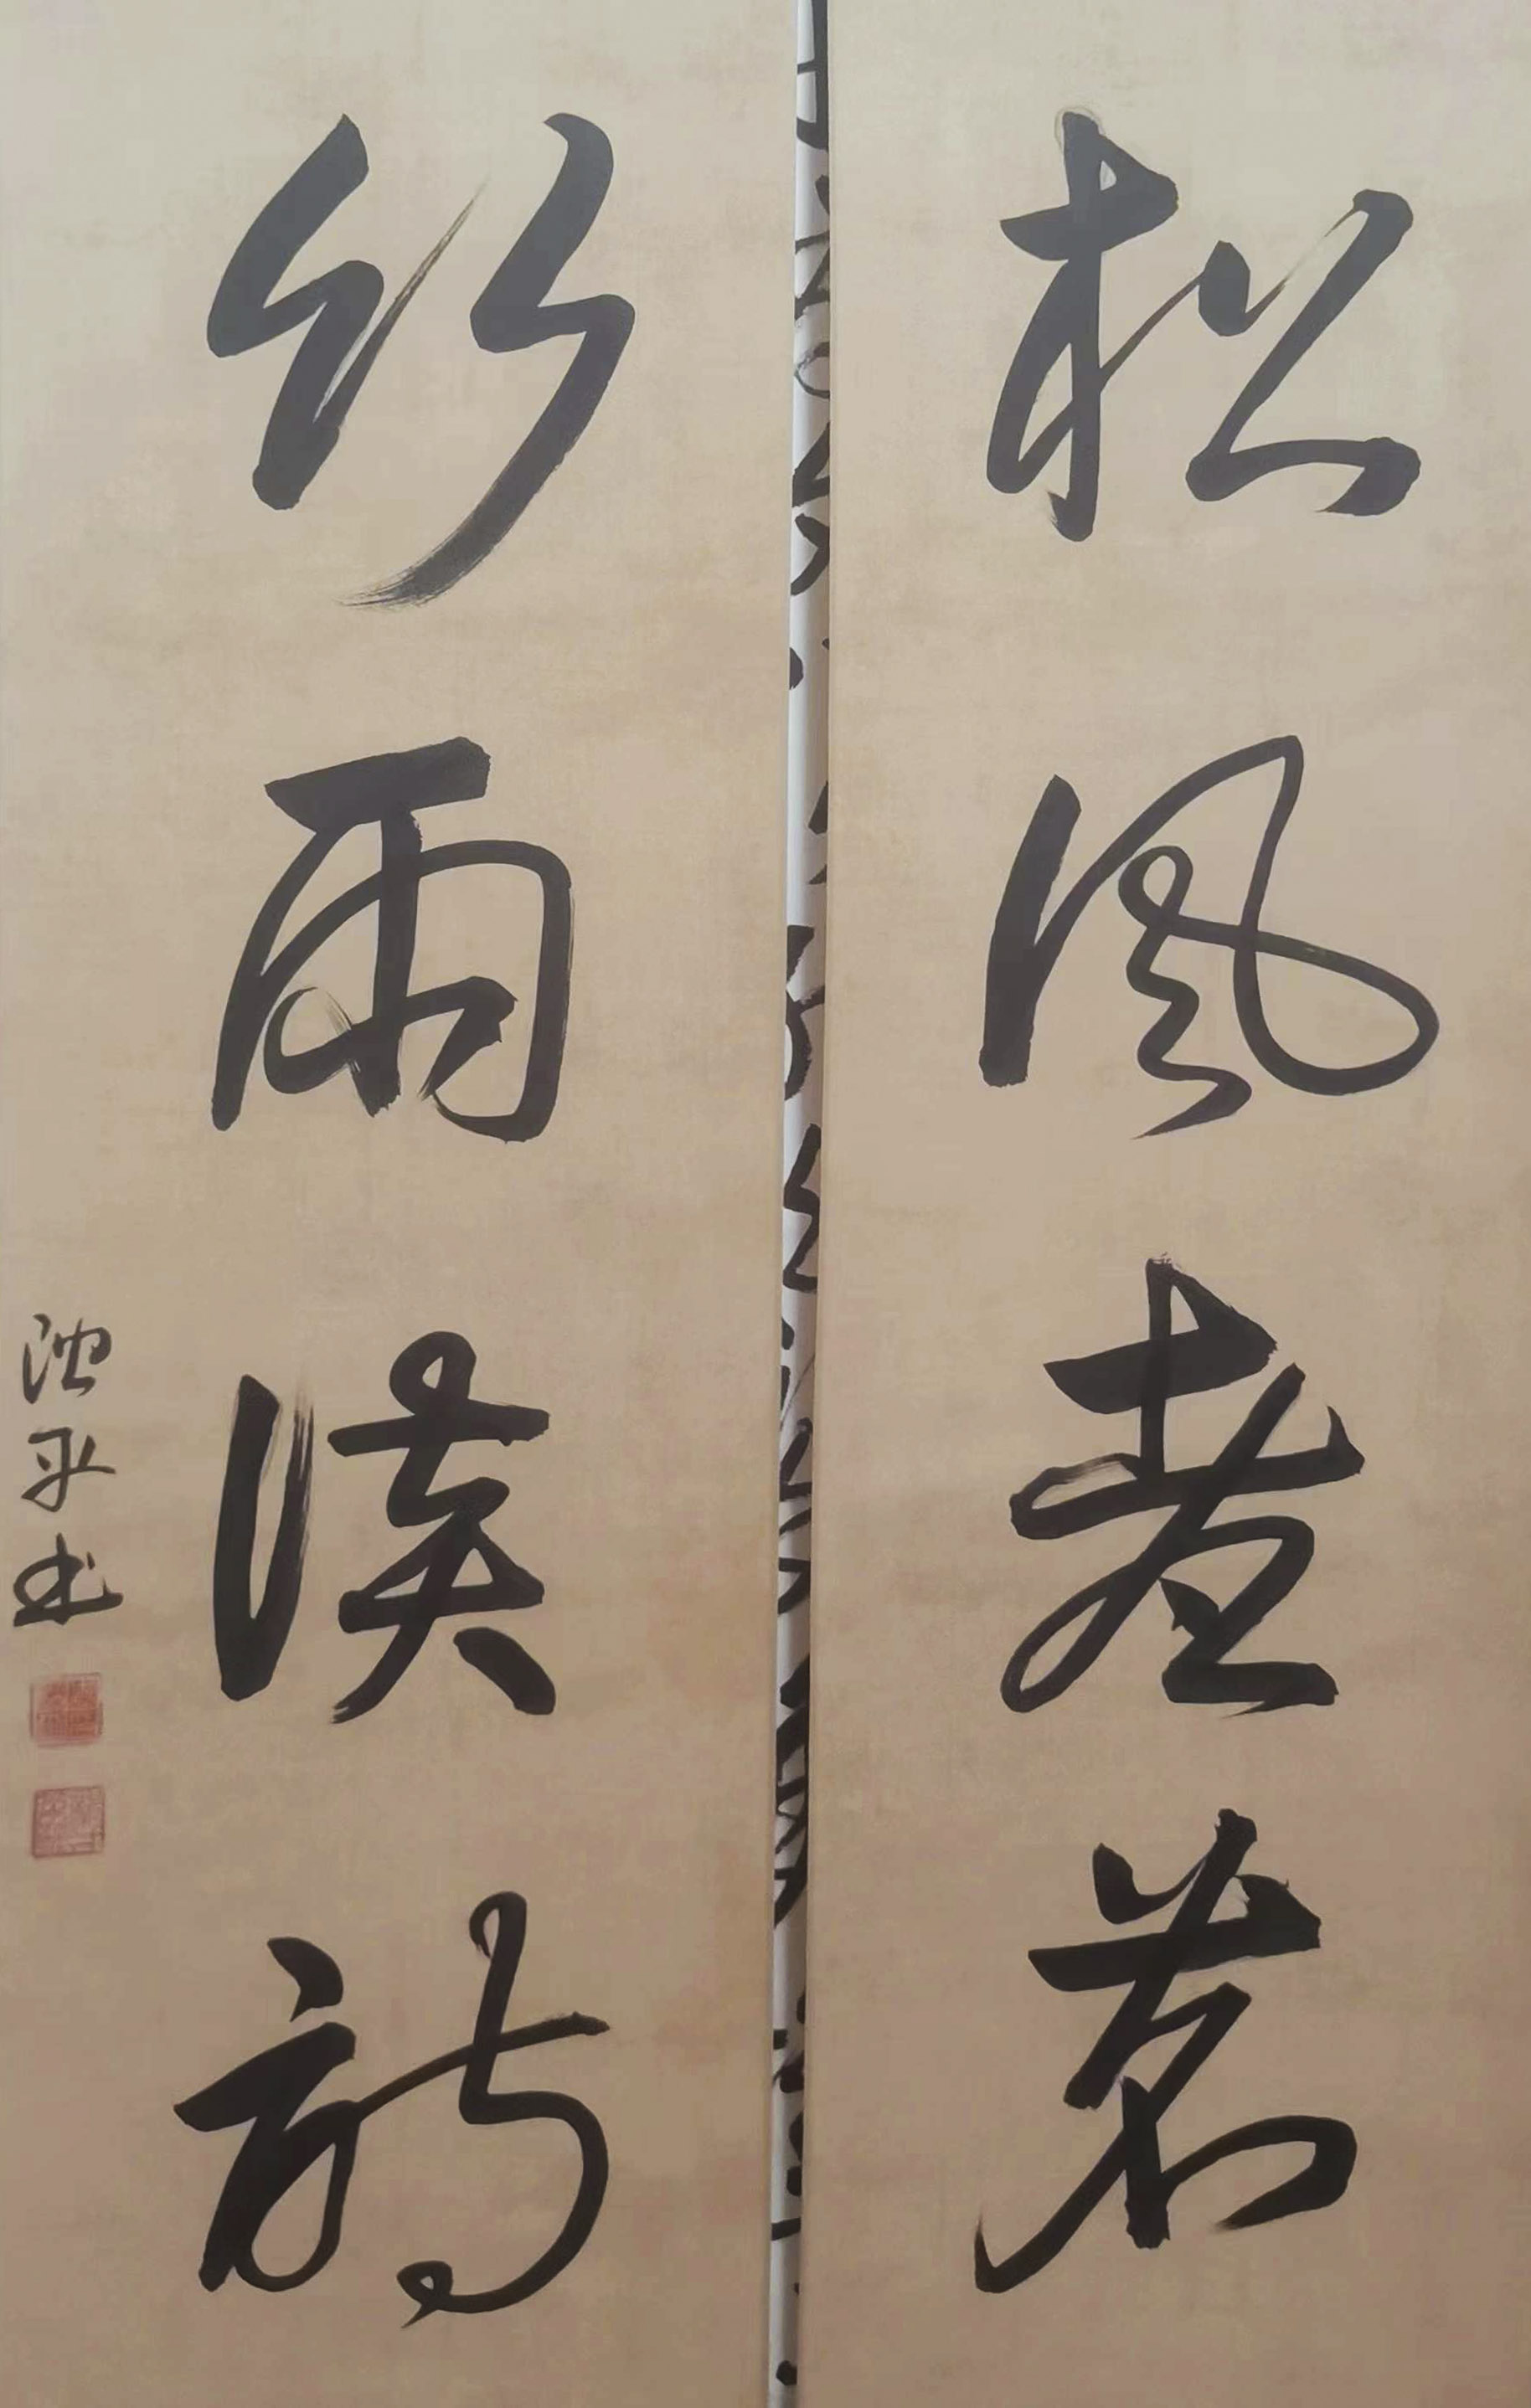 松風煮茗
竹雨談詩
沈平书